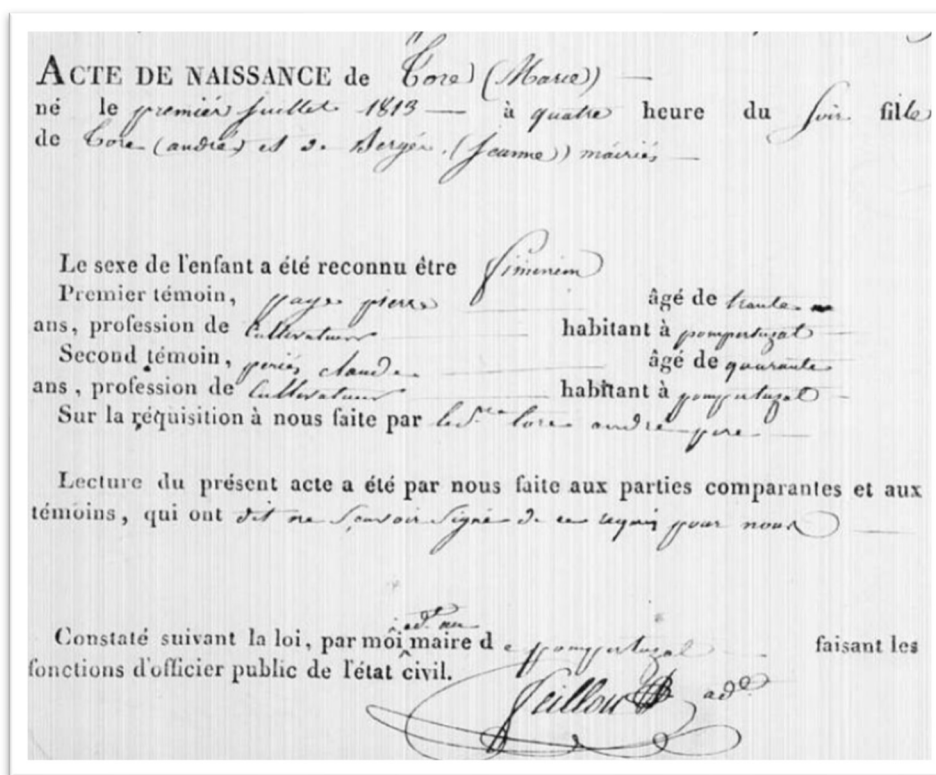 ACTE DE NAISSANCE de Tore (Marie)
né le premier juillet 1813 à quatre heure du soir fille
de Tore (andré) et de Bergés (jeanne) mariés
Le sexe de l'enfant a été reconnu être
Premier témoin, page pierre âgé de trante
ans, profession de Cultivateur habitant à pompertuzat
Second témoin, periés claude âgé de quarante
ans, profession de Cultivateur habitant à pompertuzat
Sur la réquisition à nous faite par le dit Sr tore andré pere
Lecture du présent acte a été par nous faite aux parties comparantes et aux
témoins, qui ont dit ne savoir signé de ce requis par nous
adt au
Constaté suivant la loi, par moi maire de pompertuzat faisant les
fonctions d'officier public de l'état civil.
adt